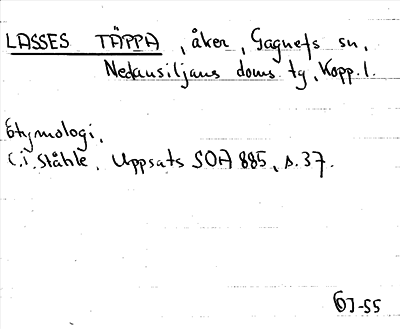 LASSES TÄPPA, åker, Gagnefs sn,
Nedansiljans doms. tg, Kopp. l.
Etymologi.
C.I. Ståhle. Uppsats SOA 885, s. 37.